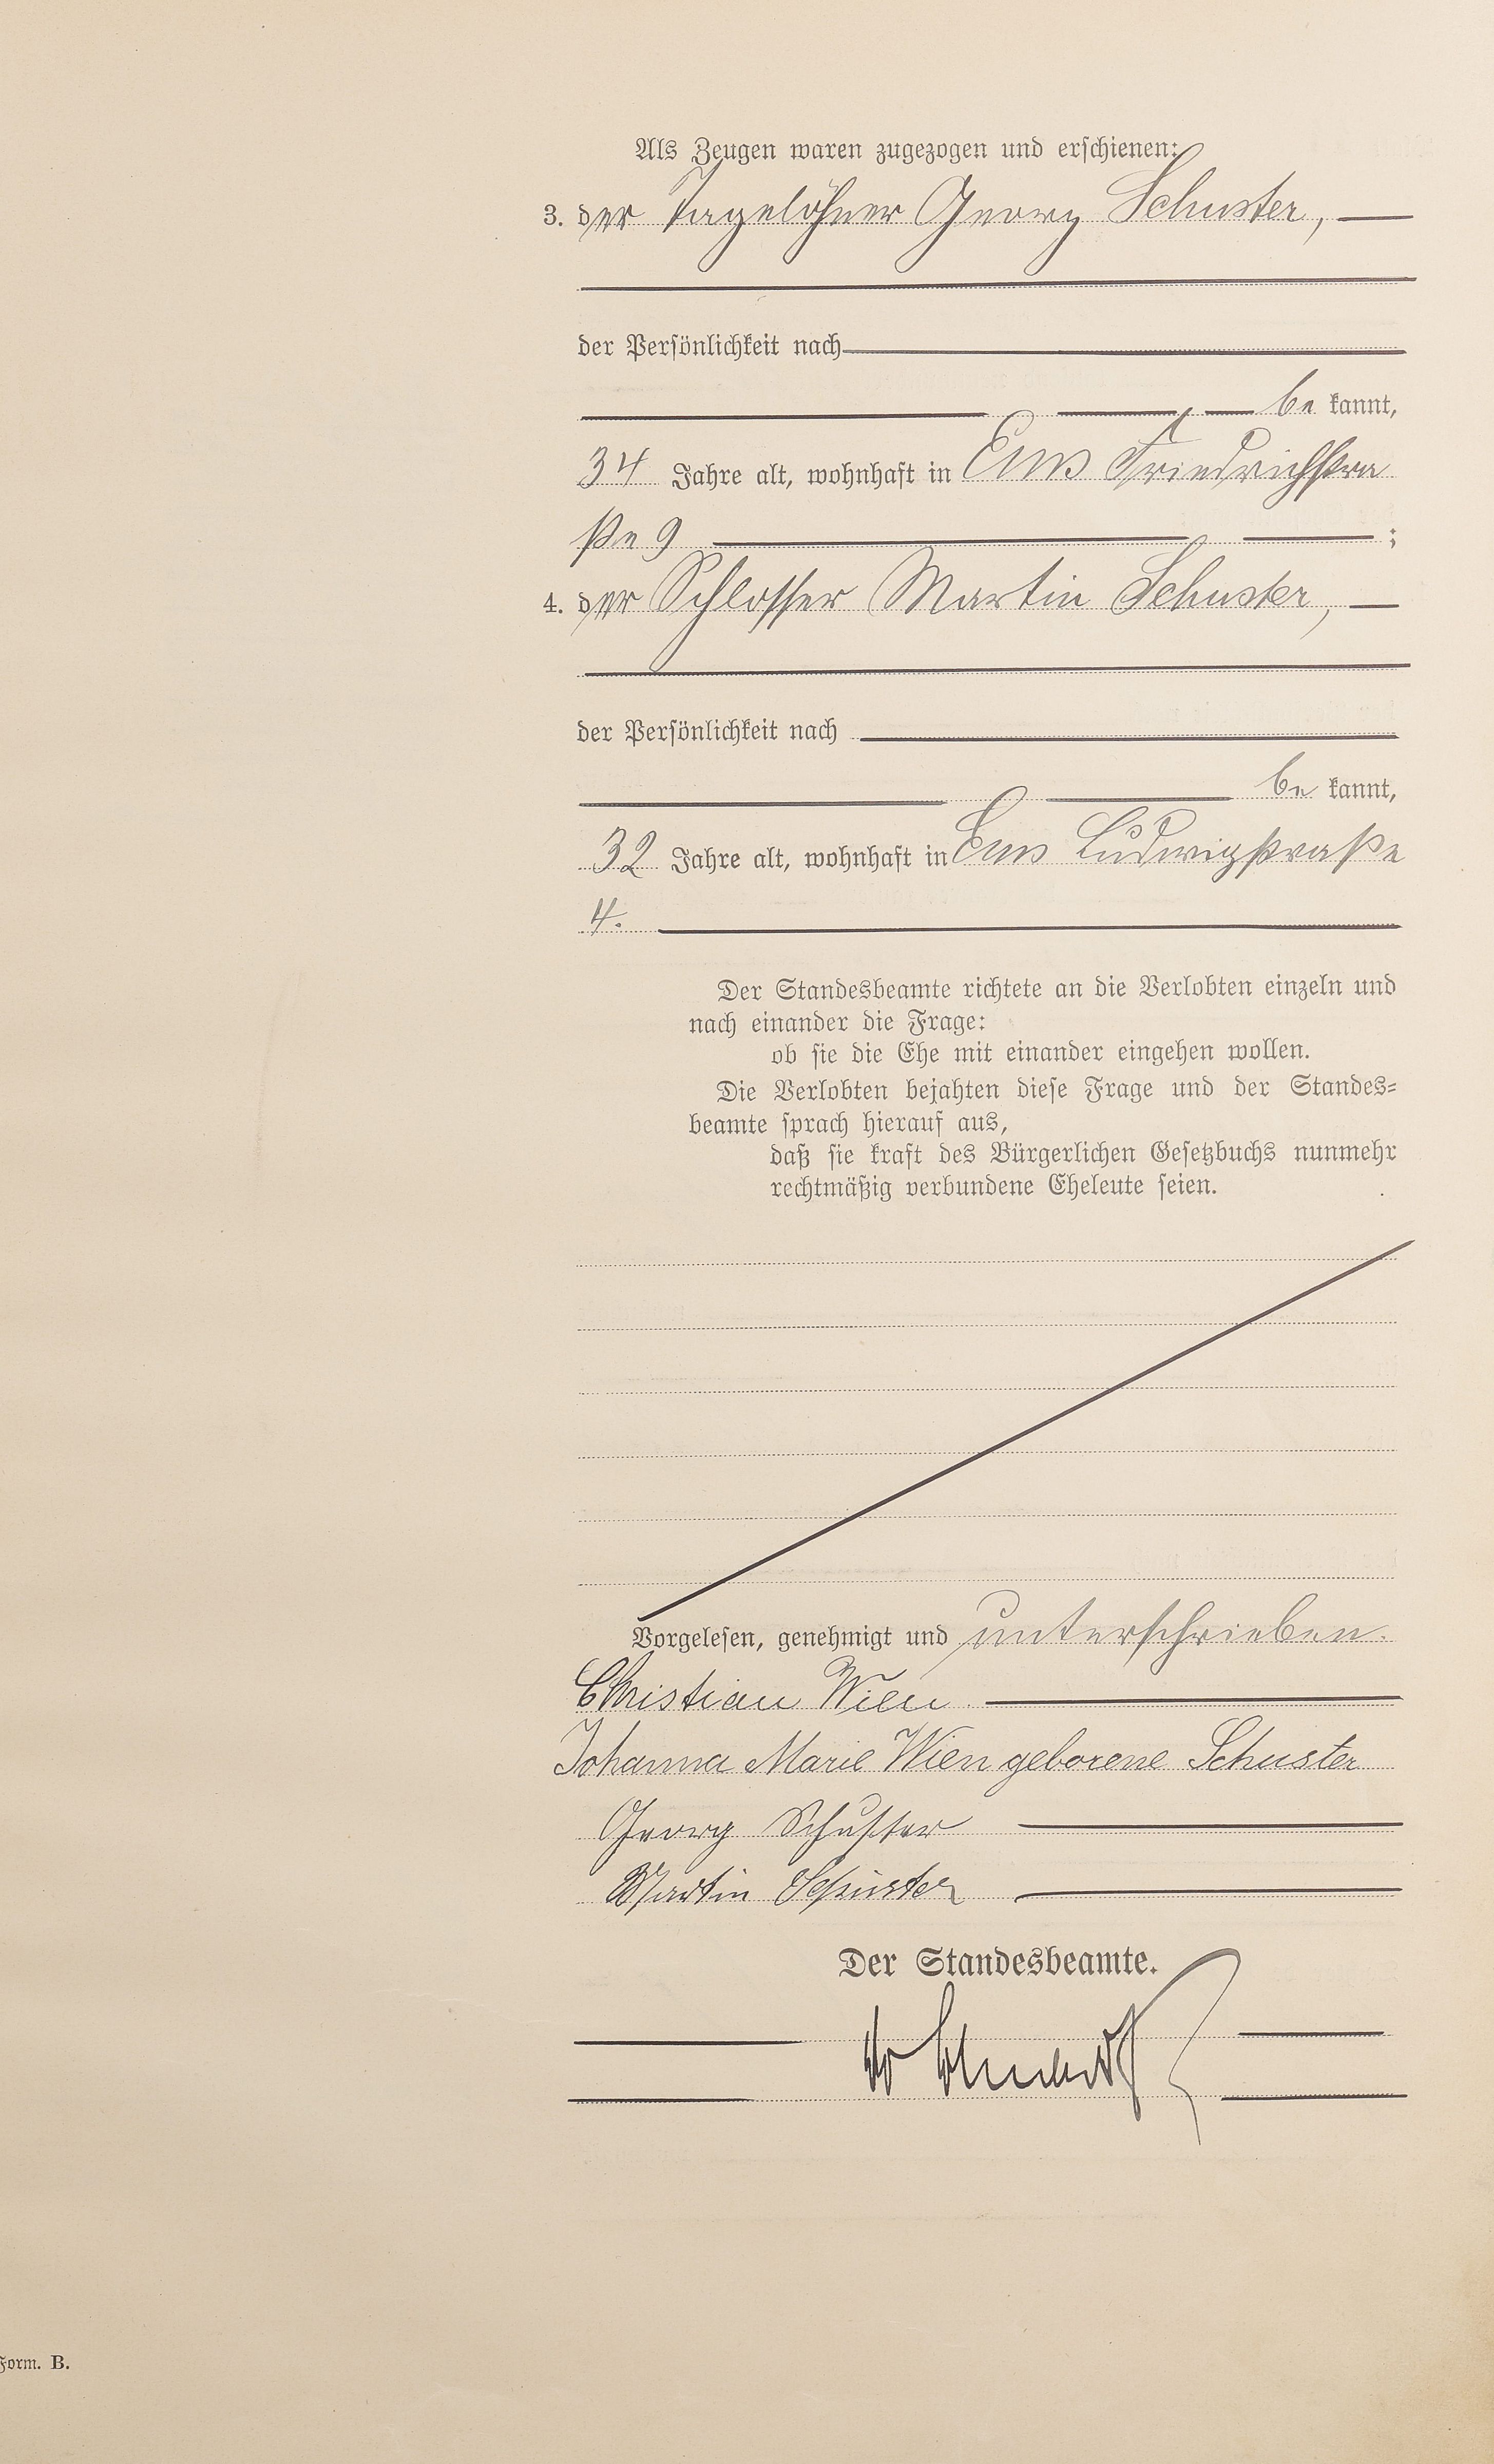 Als Zeugen waren zugezogen und erschienen:
3. der Tagelöhner Georg Schuster,
der Persönlichkeit nach
be kannt,
34 Jahre alt, wohnhaft in Ems Friedrichstra
ße 9 ;
4. der Schlosser Martin Schuster,
der Persönlichkeit nach
be kannt,
32 Jahre alt, wohnhaft in Ems Ludwigstraße
4.
Der Standesbeamte richtete an die Verlobten einzeln und
nach einander die Frage:
ob sie die Ehe mit einander eingehen wollen.
Die Verlobten bejahten diese Frage und der Standes=
beamte sprach hierauf aus,
daß sie kraft des Bürgerlichen Gesetzbuchs nunmehr
rechtmäßig verbundene Eheleute seien.
Vorgelesen, genehmigt und unterschrieben.
Christian Wien
Johanna Marie Wien geborene Schuster
Georg Schuster
Martin Schuster
Der Standesbeamte.
Form. B.